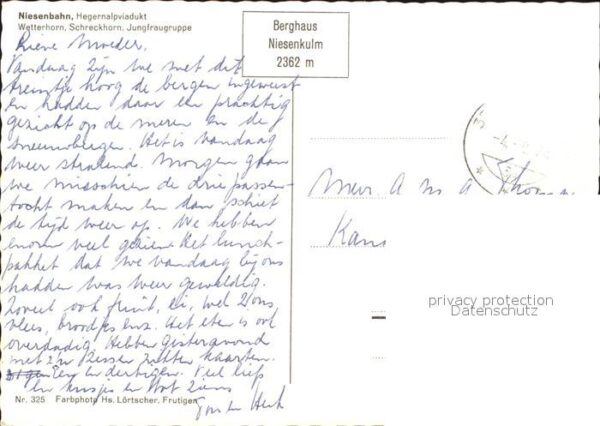 Niesenbahn, Hegernalpviadukt
Wetterhorn, Schreckhorn, Jungfraugruppe
Berghaus
Niesenkulm
2362 m
Lieve Moeder,
Vandaag zijn we met dit
treintje hoog de bergen ingeweest
en hadden daar een prachtig
gezicht op de meren en de
sneeuwbergen. Het is vandaag
weer stralend. Morgen gaan
we misschien de drie passen-
tocht maken en dan schiet
de tijd weer op. We hebben
enorm veel gezien. Het lunch-
pakket dat we vandaag bij ons
hadden was weer geweldig.
Zoveel ook fruit, ei, vlees, broodjes enz. Het eten is ook
overdadig. Hebben gisteravond
met z'n zessen zitten kaarten.
Een en dertigen. Veel liefs
en kusjes en tot ziens
Henk
Mevr. A
privacy protection
Datenschutz
Nr. 325 Farbphoto Hs. Lörtscher, Frutigen